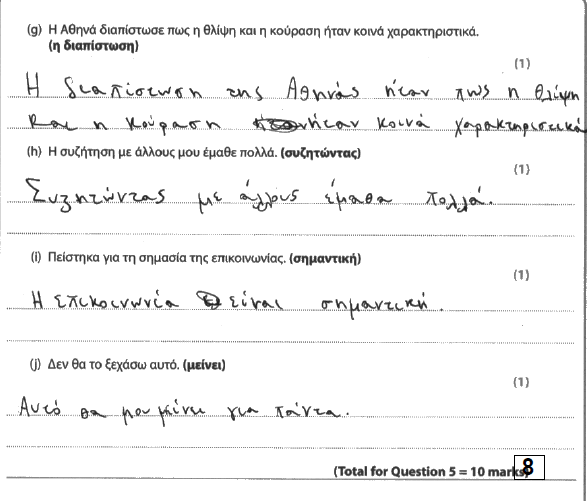 (g) Η Αθηνά διαπίστωσε πως η θλίψη και η κούραση ήταν κοινά χαρακτηριστικά.
(η διαπίστωση)
(1)
Η διαπίστωση της Αθηνάς ήταν πως η θλίψη
και η κούραση ήταν κοινά χαρακτηριστικά
(h) Η συζήτηση με άλλους μου έμαθε πολλά. (συζητώντας)
(1)
Συζητώντας με άλλους έμαθα πολλά.
(i) Πείστηκα για τη σημασία της επικοινωνίας. (σημαντική)
(1)
Η επικοινωνία είναι σημαντική.
(j) Δεν θα το ξεχάσω αυτό. (μείνει)
(1)
Αυτό θα μου μείνει για πάντα.
(Total for Question 5 = 10 marks) 8